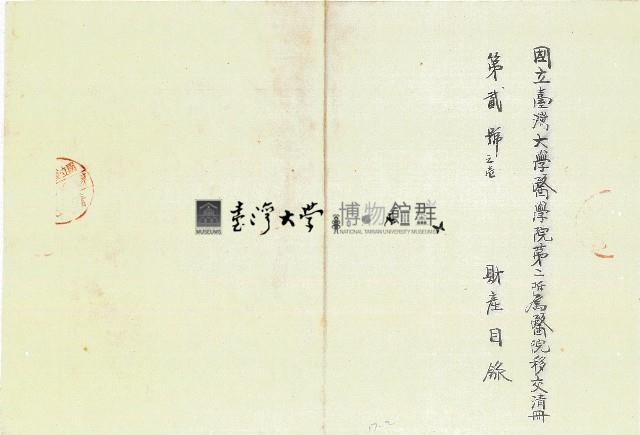 國立臺灣大學醫學院第二附屬醫院移交清冊
第貳號之壱
財產目錄
臺灣大學 博物館群
MUSEUMS
NATIONAL TAIWAN UNIVERSITY MUSEUMS
17-2